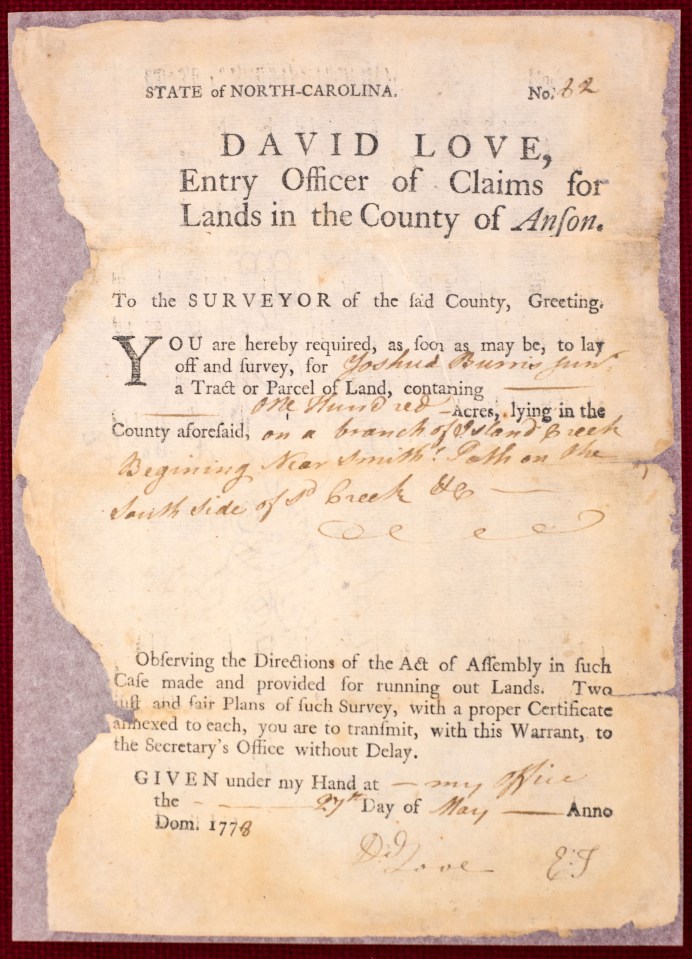 STATE of NORTH-CAROLINA. No. 82
DAVID LOVE,
Entry Officer of Claims for
Lands in the County of Anſon.
To the SURVEYOR of the ſaid County, Greeting.
YOU are hereby required, as ſoon as may be, to lay
off and ſurvey, for Joshua Burris Junr.
a Tract or Parcel of Land, contaning
one Hundred Acres, lying in the
County aforeſaid, on a branch of Island Creek
Begining Near Smiths Path on the
South Side of sd Creek &c
Obſerving the Directions of the Act of Aſſembly in ſuch
Caſe made and provided for running out Lands. Two
juſt and fair Plans of ſuch Survey, with a proper Certificate
annexed to each, you are to tranſmit, with this Warrant, to
the Secretary's Office without Delay.
GIVEN under my Hand at my office
the 27th Day of May Anno
Dom. 1778
Dd Love E:T